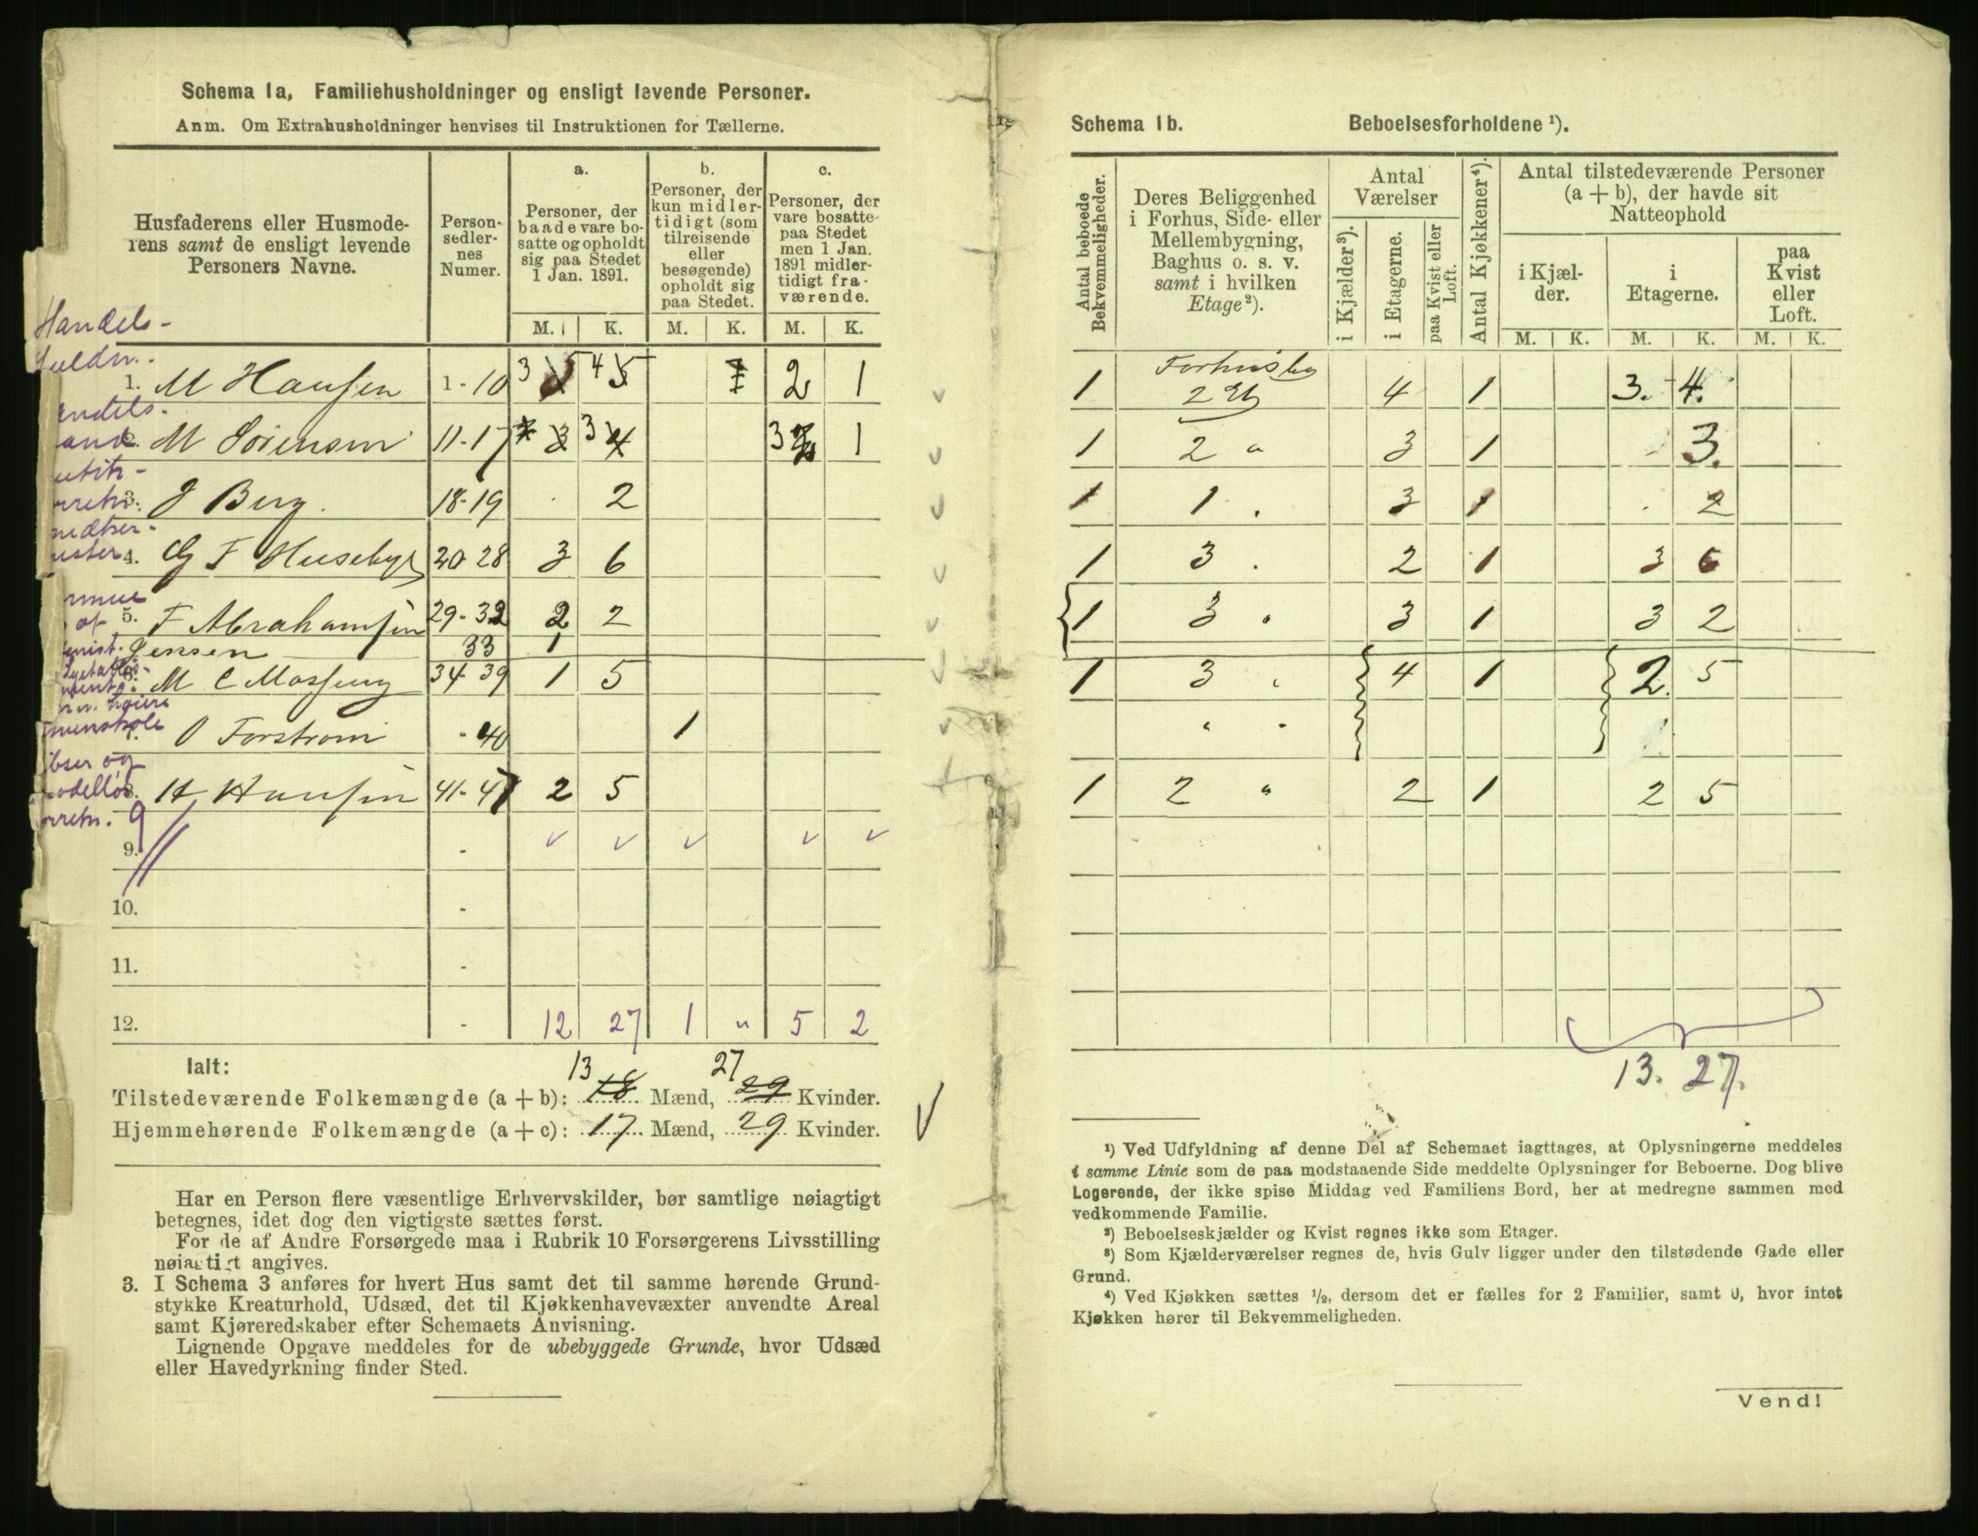 Schema 1a, Familiehusholdninger og ensligt levende Personer.
Anm. Om Extrahusholdninger henvises til Instruktionen for Tællerne.
Husfaderens eller Husmode-
rens samt de ensligt levende
Personers Navne.
Person-
sedler-
nes
Numer.
a.
Personer, der
baade vare bo-
satte og opholdt
sig paa Stedet
1 Jan. 1891.
b.
Personer, der
kun midler-
tidigt (som
tilreisende
eller
besøgende)
opholdt sig
paa Stedet.
c.
Personer, der
vare bosatte
paa Stedet
men 1 Jan.
1891 midler-
tidigt fra-
værende.
M. K. M. K. M. K.
Handels-
1. M Hansen 1-10 3 4 2 1
2. M Sörensen 11-17 3 3 1
3. J Berg. 18-19 2
4. F Husebye 20-28 3 6
5. F Abrahamsen 29-32 2 2
Jensen 33 1
6. M C Mossung 34-39 1 5
7. O Forstrom - 40 1
8. H Hansen 41-47 2 5
9. -
10. -
11. -
12. - 12 27 1 " 5 2
Ialt:
13 27
Tilstedeværende Folkemængde (a + b): 18 Mænd, 29 Kvinder.
Hjemmehørende Folkemængde (a + c): 17 Mænd, 29 Kvinder.
Har en Person flere væsentlige Erhvervskilder, bør samtlige nøiagtigt
betegnes, idet dog den vigtigste sættes først.
For de af Andre Forsørgede maa i Rubrik 10 Forsørgerens Livsstilling
nøiagtigt angives.
3. I Schema 3 anføres for hvert Hus samt det til samme hørende Grund-
stykke Kreaturhold, Udsæd, det til Kjøkkenhavevæxter anvendte Areal
samt Kjøreredskaber efter Schemaets Anvisning.
Lignende Opgave meddeles for de ubebyggede Grunde, hvor Udsæd
eller Havedyrkning finder Sted.
Schema 1b. Beboelsesforholdene ¹).
Antal beboede
Bekvemmeligheder.
Deres Beliggenhed
i Forhus, Side- eller
Mellembygning,
Baghus o. s. v.
samt i hvilken
Etage²).
Antal
Værelser
i Kjælder³).
i Etagerne.
paa Kvist eller
Loft.
Antal Kjøkkener⁴).
Antal tilstedeværende Personer
(a + b), der havde sit
Natteophold
i Kjæl-
der.
i
Etagerne.
paa
Kvist
eller
Loft.
M. K. M. K. M. K.
Forhusby
1 2 Et 4 1 3. 4.
1 2 " 3 1 3.
1 1 . 3 1 . 2
1 3 . 2 1 3 6
1 3 " 3 1 3 2
1 3 " 4 1 2. 5
" "
1 2 " 2 1 2 5
13. 27.
¹) Ved Udfyldning af denne Del af Schemaet iagttages, at Oplysningerne meddeles
i samme Linie som de paa modstaaende Side meddelte Oplysninger for Beboerne. Dog blive
Logerende, der ikke spise Middag ved Familiens Bord, her at medregne sammen med
vedkommende Familie.
²) Beboelseskjælder og Kvist regnes ikke som Etager.
³) Som Kjælderværelser regnes de, hvis Gulv ligger under den tilstødende Gade eller
Grund.
⁴) Ved Kjøkken sættes ¹/₂, dersom det er fælles for 2 Familier, samt 0, hvor intet
Kjøkken hører til Bekvemmeligheden.
Vend!